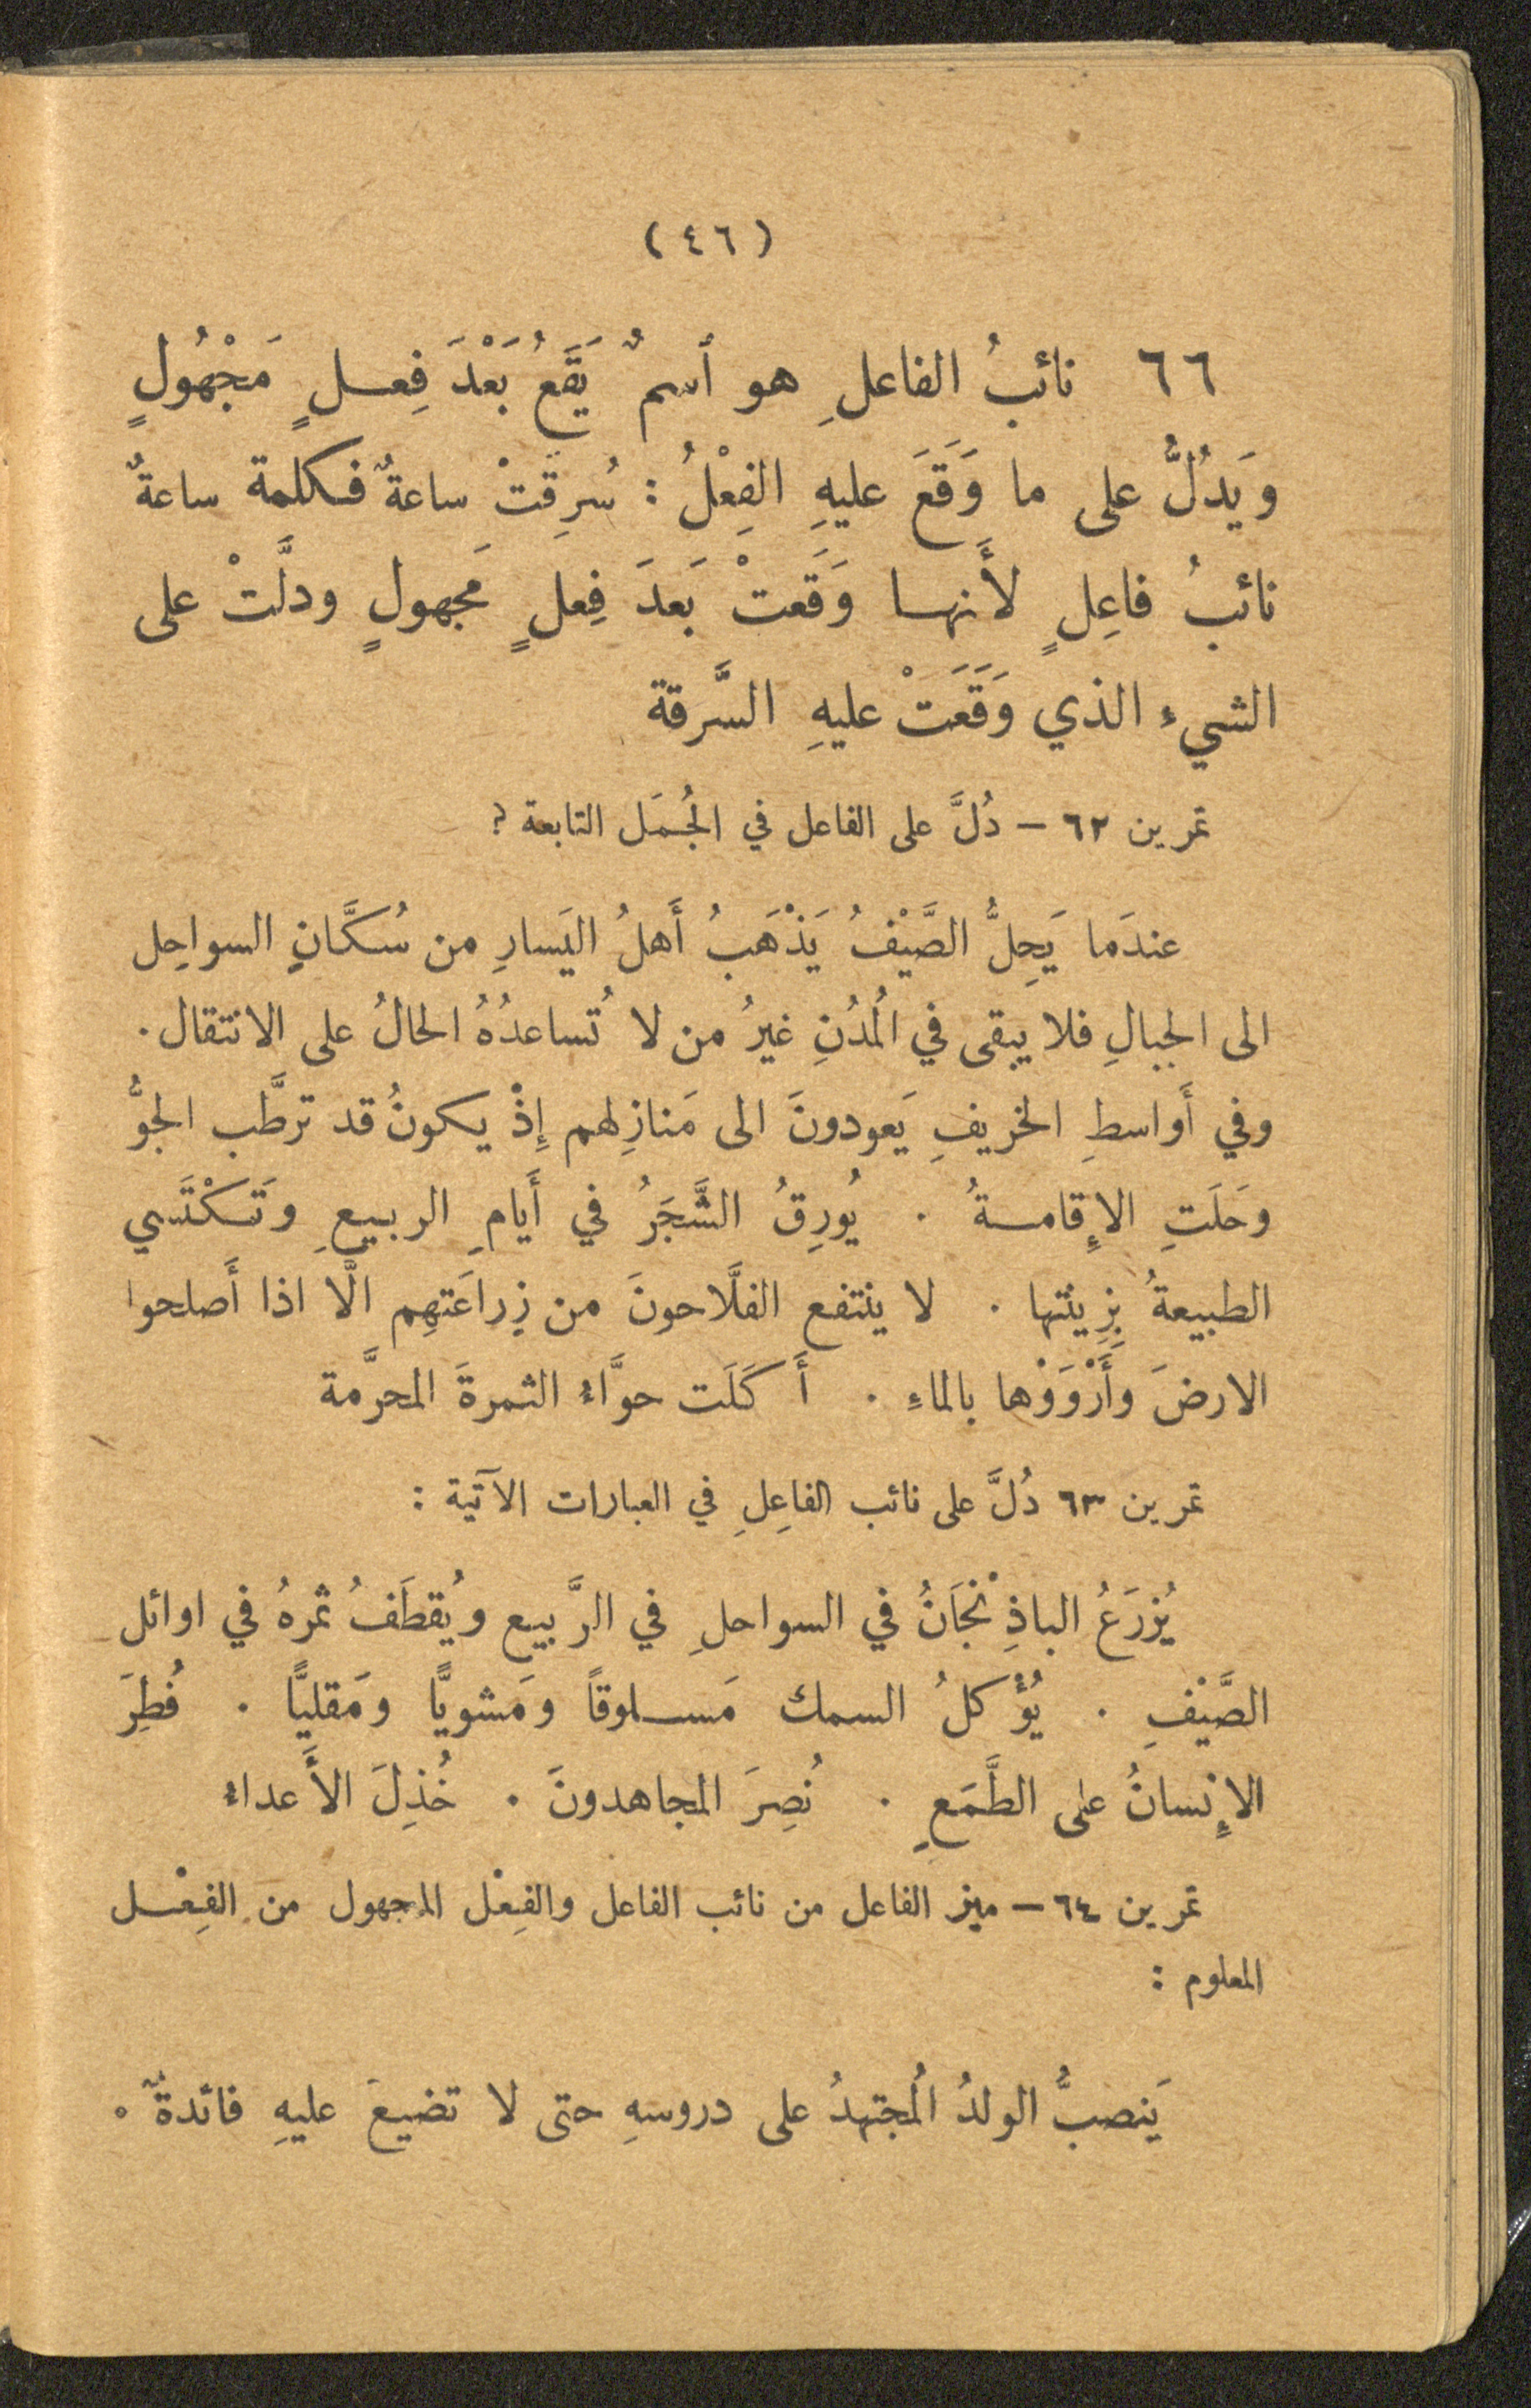 (٤٦)
٦٦ نائبُ الفاعلِ هو ٱسمٌ يَقَعُ بَعْدَ فِعلٍ مَجْهُولٍ
وَيَدُلُّ على ما وَقَعَ عليهِ الفِعْلُ : سُرِقتْ ساعةٌ فكلمة ساعةٌ
نائبُ فاعِلٍ لأَنها وَقَعتْ بَعدَ فِعلٍ مَجهولٍ ودلَّتْ على
الشيء الذي وَقَعَتْ عليهِ السَّرقة
تمرين ٦٢ – دُلَّ على الفاعل في الجُمَل التابعة ؟
عندَما يَحِلُّ الصَّيْفُ يَذْهَبُ أَهلُ اليَسارِ من سُكَّانِ السواحِل
الى الجبالِ فلا يبقى في المُدُنِ غيرُ من لا تُساعدُهُ الحالُ على الانتقال .
وفي أَواسطِ الخريفِ يَعودونَ الى مَنازِلهم إِذْ يكونُ قد ترطَّب الجوُّ
وحَلَتِ الإِقامةُ . يُورِقُ الشَّجَرُ في أَيامِ الربيعِ وَتَكْتَسي
الطبيعةُ بِزِينتها . لا ينتفع الفلَّاحونَ من زِراعَتهِم الَّا اذا أَصلحوا
الارضَ وأَرْوَوْها بالماءِ . أَكَلَت حوَّاءُ الثمرةَ المحرَّمة
تمرين ٦٣ دُلَّ على نائب الفاعِلِ في العبارات الآتية :
يُزرَعُ الباذِنْجَانُ في السواحلِ في الرَّبيع ويُقطَفُ ثمرهُ في اوائل
الصَّيْفِ . يُؤْكلُ السمك مَسلوقاً ومَشويًّا ومَقليًّا . فُطِرَ
الإِنسانُ على الطَّمَعِ . نُصِرَ المجاهدونَ . خُذِلَ الأَعداءُ
تمرين ٦٤ – ميز الفاعل من نائب الفاعل والفِعْل المجهول من الفِعْل
المعلوم :
يَنصبُّ الولدُ المُجتهدُ على دروسهِ حتى لا تضيعَ عليهِ فائدةٌ .